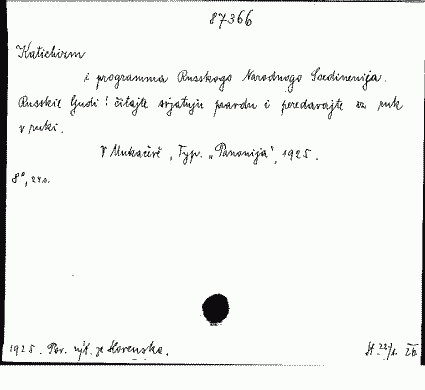 87366
Katichizm
i programma Russkogo Narodnogo Soedinenija.
Russkie ljudi! čitajte svjatuju pravdu i peredavajte iz ruk
v ruki.
V Mukačevě, Typ. „Panonija", 1925.
8°, 24 s.
1925. Pov. výt. ze Slovenska.